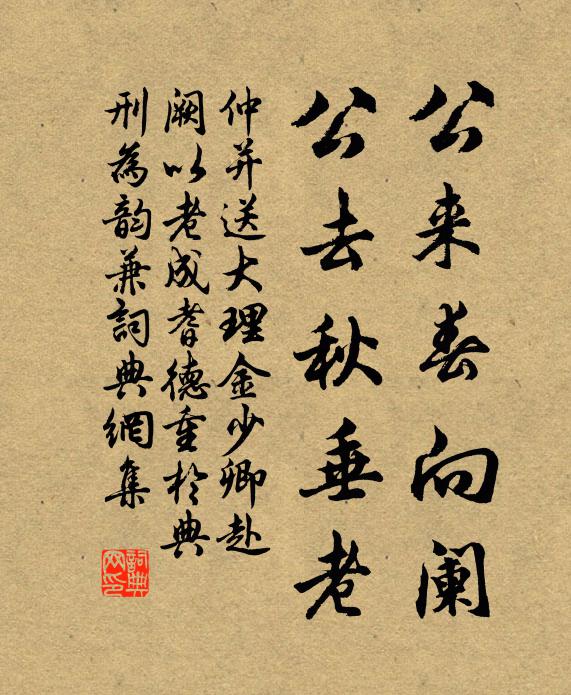 公来春向阑
公去秋垂老
仲并送大理金少卿赴
阙以老成耆德重於典
刑為韵兼詞典網集
詞典网印